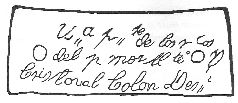 U,, a p,, te de los r tos
del p mer al te D
Cristoval Colon Des,, r